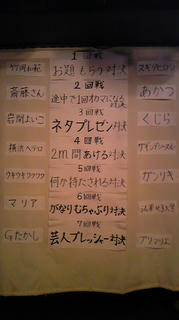 1回戦
お題もらう対決
スギタヒロシ
2回戦
斎藤さん
途中で1回オカマになる対決
あかつ
3回戦
岩間よいこ
ネタプレゼン対決
くじら
4回戦
横浜ヘテロ
2m間あける対決
サイクンディースル
5回戦
ウキウキワクワク
何か持たされる対決
ガンリキ
6回戦
マリア
がなりむちゃぶり対決
7回戦
Gたかし
芸人プレッシャー対決
プリマリエ